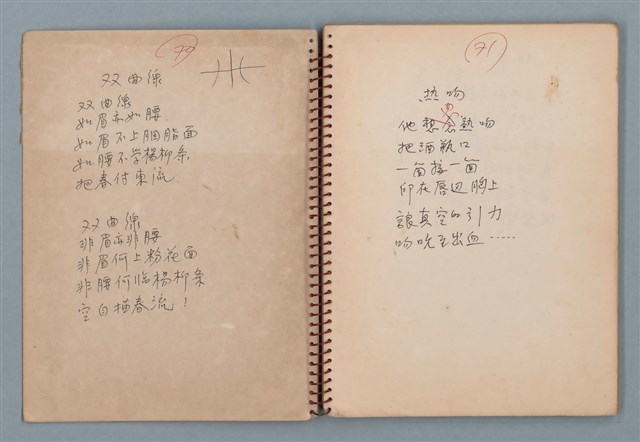 双曲線
双曲線
如眉亦如腰
如眉不上胭脂面
如腰不学楊柳条
把春付東流
双曲線
非眉亦非腰
非眉何上粉花面
非腰何临楊柳条
空白描春流！
71
热吻
他想熱吻
把酒瓶口
一箇接一箇
印在唇边胸上
讓真空的引力
吻吮至出血……